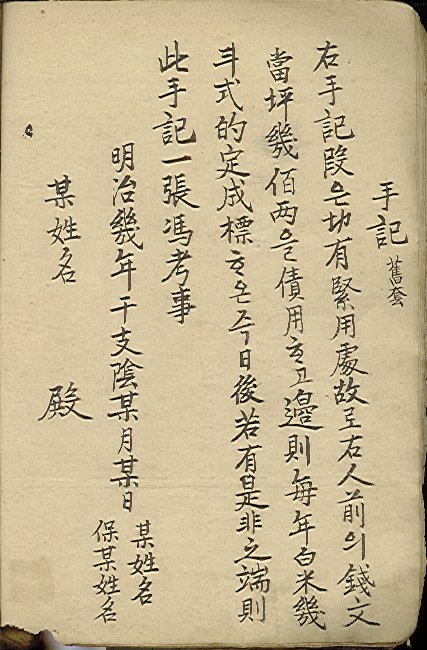 手記 舊套
右手記段은切有緊用處故로右人前의錢文
當坪幾佰両을債用하고邊則每年白米幾
斗式的定成標하온즉日後若有是非之端則
此手記一張馮考事
明治幾年干支陰某月某日
某姓名
保某姓名
某姓名 殿